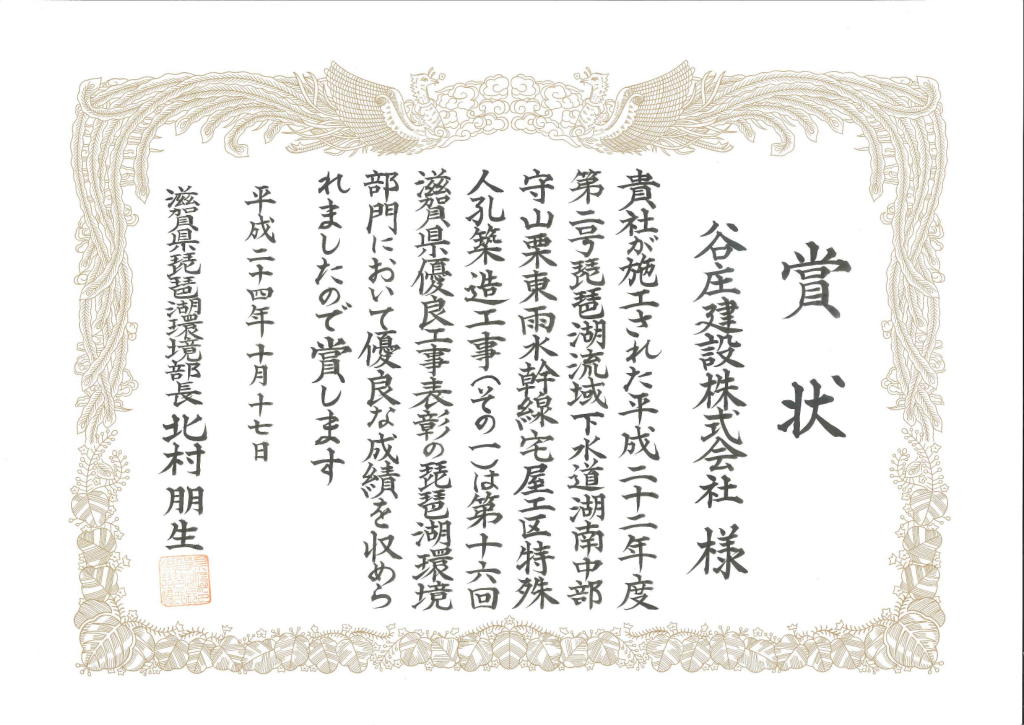 賞状
谷庄建設株式会社 様
貴社が施工された平成二十二年度
第二号琵琶湖流域下水道湖南中部
守山栗東雨水幹線宅屋工区特殊
人孔築造工事(その一)は第十六回
滋賀県優良工事表彰の琵琶湖環境
部門において優良な成績を収めら
れましたので賞します
平成二十四年十月十七日
滋賀県琵琶湖環境部長 北村 朋生